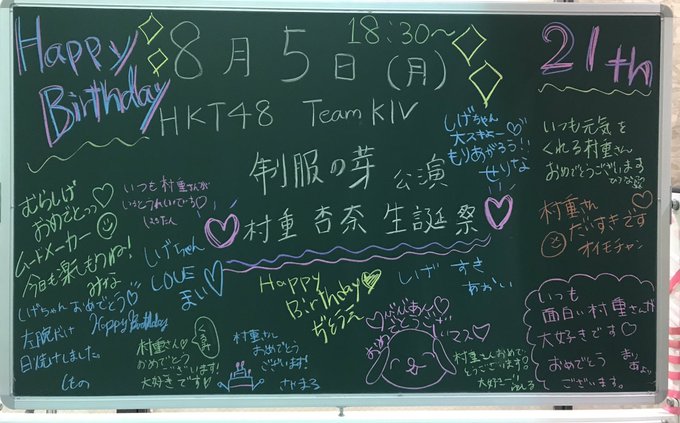 Happy
Birthday
8月5日(月)
18:30~
21th
HKT48 Team KIV
制服の芽 公演
村重 杏奈 生誕祭
しげちゃん
大スキょー♡
もりあがろう!!
せりな
いつも元気を
くれる村重さん
おめでとうございます
村重さん
だいすきです
オイモチャン
むらしげ
おめでとっっ♡
ムードメーカー
今日も楽しもうね!
みな
いつも村重さんが
しげちゃん
LOVE
まい♡
しげちゃん おめでとう♡
Happy Birthday
左腕だけ
日焼けしました。
Happy
Birthday♡
しげ すき
あかい
村重さん♡
おめでとう
ございます!
大好きです♡
村重さん
おめでとう
ございます!
村重さんおめで
とうございます!
大好きー!
いつも
面白い村重さんが
大好きです♡
おめでとう
ございます。